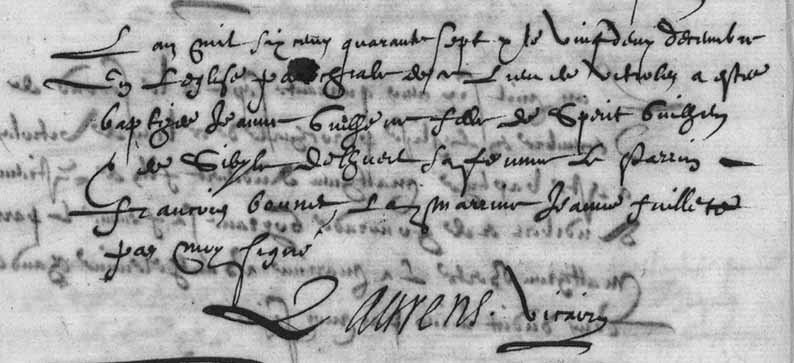 L an mil six cens quarante sept & le vingt deux decembre
En Leglise parochiale de ce Lieu de Vitrolles a este
baptizée Jeanne Guilhene fille de Sperit Guilhen
& de Sibyle sa femme Le Parrin
francois bonnet La marrine Jeanne
par moy signé
Laurens. Vicaire